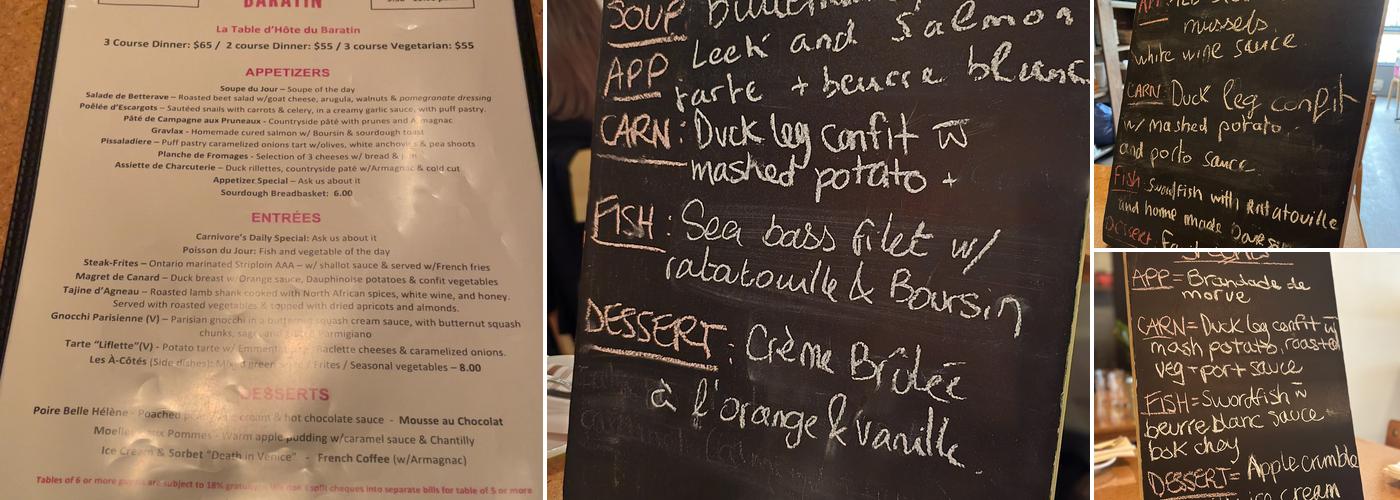 BARATIN
La Table d'Hôte du Baratin
3 Course Dinner: $65 / 2 course Dinner: $55 / 3 course Vegetarian: $55
APPETIZERS
Soupe du Jour – Soupe of the day
Salade de Betterave – Roasted beet salad w/goat cheese, arugula, walnuts & pomegranate dressing
Poêlée d'Escargots – Sautéed snails with carrots & celery, in a creamy garlic sauce, with puff pastry.
Pâté de Campagne aux Pruneaux - Countryside pâté with prunes and Armagnac
Gravlax - Homemade cured salmon w/ Boursin & sourdough toast
Pissaladiere – Puff pastry caramelized onions tart w/olives, white anchovies & pea shoots
Planche de Fromages - Selection of 3 cheeses w/ bread &
Assiette de Charcuterie – Duck rillettes, countryside paté w/Armagnac & cold cut
Appetizer Special – Ask us about it
Sourdough Breadbasket: 6.00
ENTRÉES
Carnivore's Daily Special: Ask us about it
Poisson du Jour: Fish and vegetable of the day
Steak-Frites – Ontario marinated Striploin AAA – w/ shallot sauce & served w/French fries
Magret de Canard – Duck breast w/Orange sauce, Dauphinoise potatoes & confit vegetables
Tajine d'Agneau – Roasted lamb shank cooked with North African spices, white wine, and honey.
Served with roasted vegetables & topped with dried apricots and almonds.
Gnocchi Parisienne (V) – Parisian gnocchi in a butternut squash cream sauce, with butternut squash
chunks, sage and Parmigiano
Tarte "Liflette"(V) - Potato tarte w/ Emmental Raclette cheeses & caramelized onions.
Les À-Côtés (Side dishes): Mixed green / Frites / Seasonal vegetables – 8.00
DESSERTS
Poire Belle Hélène - Poached cream & hot chocolate sauce - Mousse au Chocolat
Moelleux aux Pommes - Warm apple pudding w/caramel sauce & Chantilly
Ice Cream & Sorbet "Death in Venice" - French Coffee (w/Armagnac)
Tables of 6 or more guests are subject to 18% gratuity. split cheques into separate bills for table of 5 or more
SOUP
APP Leek and Salmon
tarte + beurre blanc
CARN: Duck leg confit w
mashed potato +
FISH: Sea bass filet w/
ratatouille & Boursin
DESSERT: Crème Brûlée
à l'orange & vanille.
mussels.
white wine sauce.
CARN Duck leg confit
w/ mashed potato
and porto sauce
Fish Swordfish with Ratatouille
and home made
Dessert
APP= Brandade de
morue
CARN= Duck leg confit w
mash potato, roasted
veg + port sauce
FISH= Swordfish w
beurre blanc sauce
bok choy
DESSERT= Apple crumble
ice cream